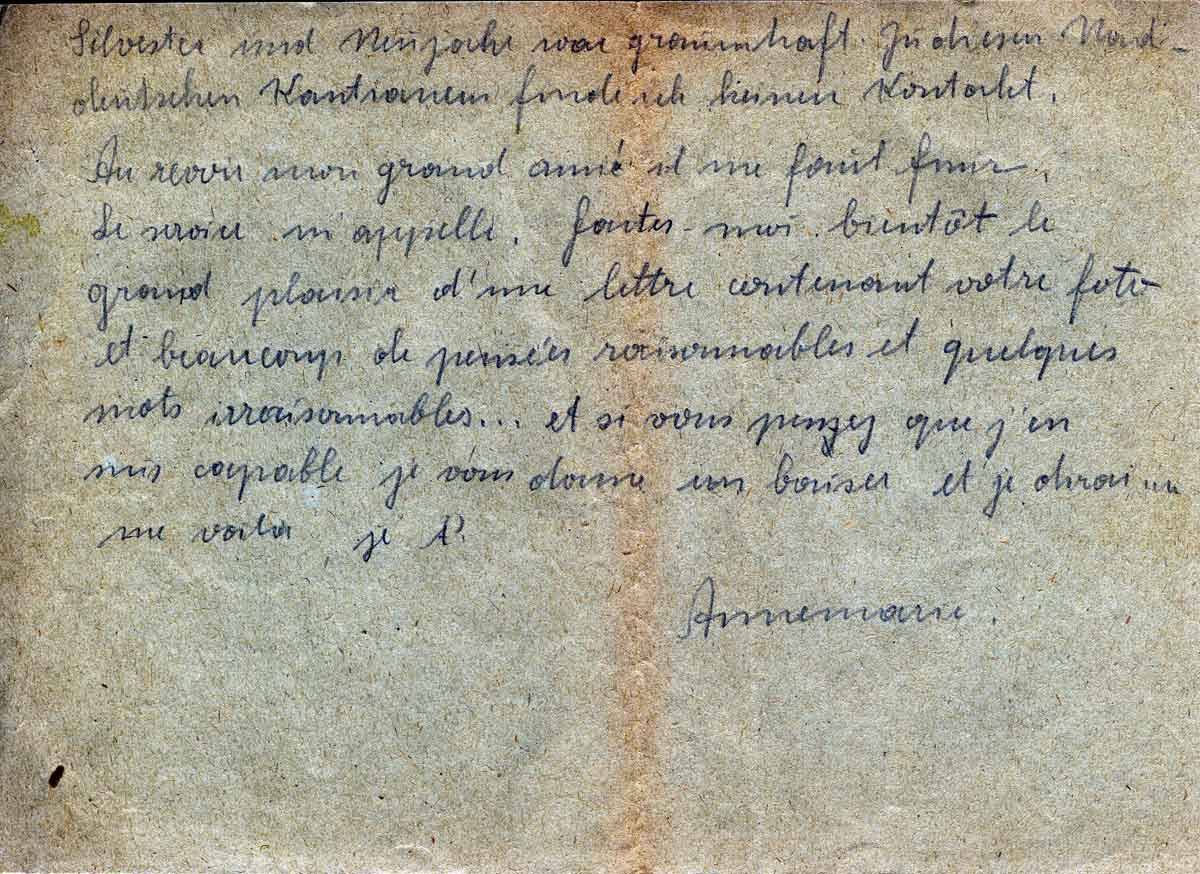 Silvester und Neujahr war grauenhaft. Zu diesen Nord-
deutschen Kantianern finde ich keinen Kontakt.
Au revoir mon grand amié il me faut finir.
Le service m'appelle. Faites-moi bientôt le
grand plaisir d'une lettre contenant votre foto
et beaucoup de pensées raisonnables et quelques
mots irraisonnables... et si vous pensez que j'en
suis capable je vous donne un baiser et je dirai
me voilà, je
Annemarie.